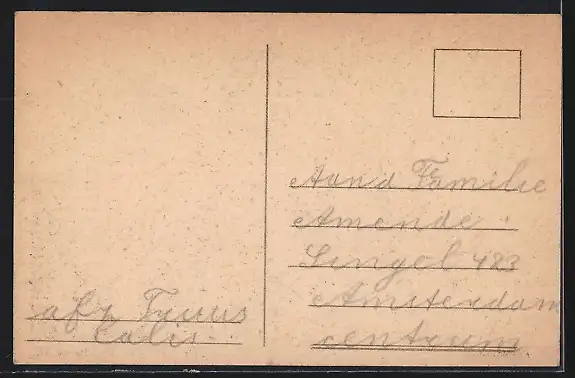 Aan d Familie
Amende.
Singel 423
Amsterdam
centrum
afz Truus
Calis